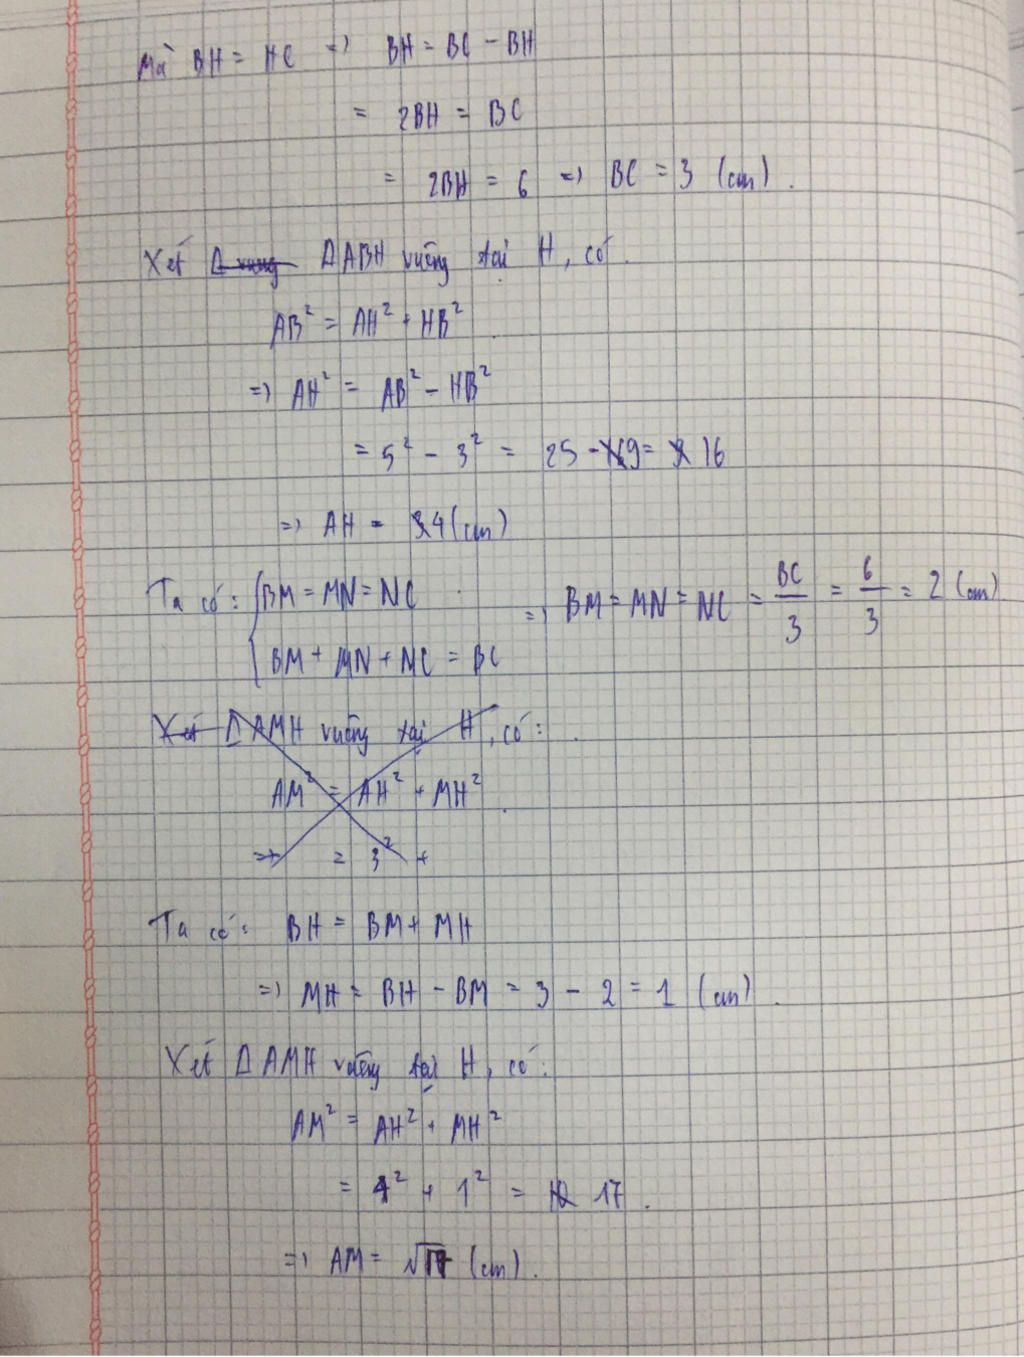 Mà BH = HC => BH = BC - BH
= 2BH = BC
= 2BH = 6 => BC = 3 (cm).
Xét ΔABH vuông tại H, có.
AB² = AH² + HB²
=> AH² = AB² - HB²
= 5² - 3² = 25 - 9 = 16
=> AH = 4 (cm)
Ta có: { BM = MN = NC => BM = MN = NC = BC/3 = 6/3 = 2 (cm)
BM + MN + NC = BC
Xét ΔAMH vuông tại H, có:
AM² = AH² + MH²
=> = 3² +
Ta có: BH = BM + MH
=> MH = BH - BM = 3 - 2 = 1 (cm).
Xét ΔAMH vuông tại H, có:
AM² = AH² + MH²
= 4² + 1² = 17.
=> AM = √17 (cm).